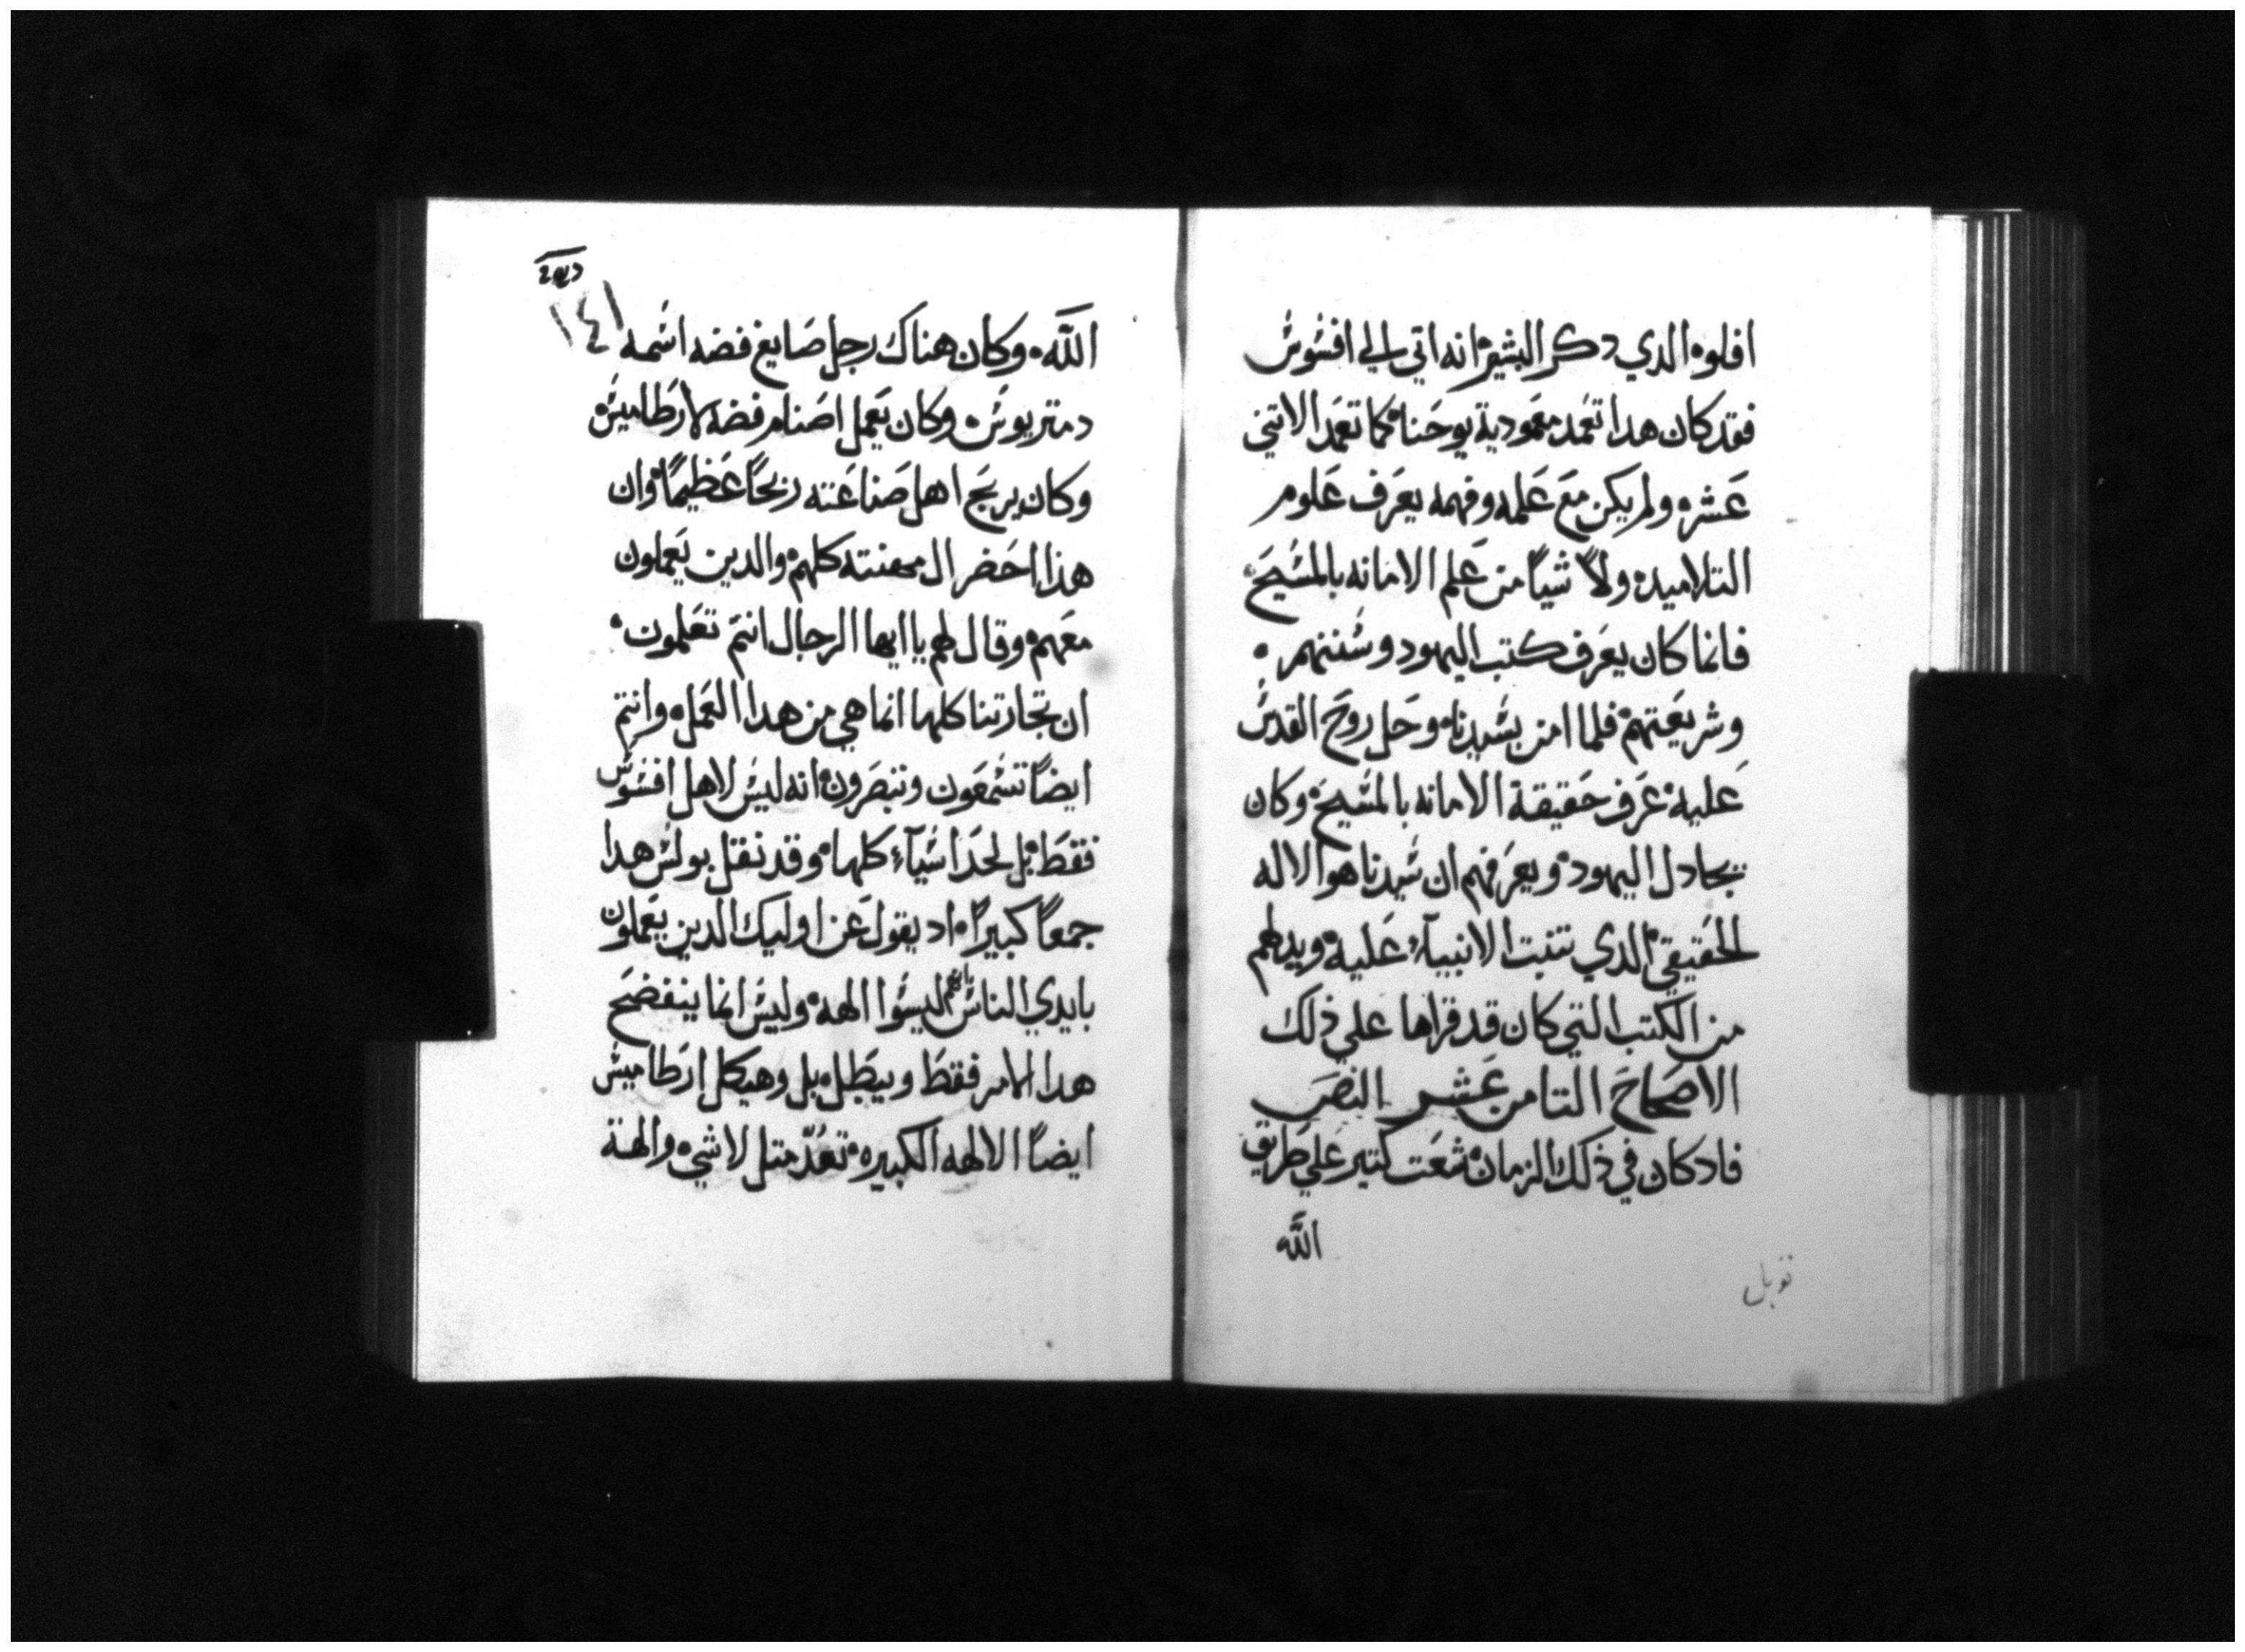 افلوه الدي دكر البشير انه اتي الي افسوس
فقد كان هدا تعمد معمودية يوحنا كما تعمد الاتني
عشره ولم يكن مع علمه وفهمه يعرف علوم
التلاميد ولا شياً من علم الامانه بالمسيح
فانما كان يعرف كتب اليهود وسننهم
وشريعتهم فلما امن بسيدنا وحل روح القدس
عليه عرف حقيقة الامانه بالمسيح وكان
يجادل اليهود ويعرفهم ان سيدنا هو الاله
الحقيقي الدي تنبت الانبيآء عليه ويدلهم
من الكتب التي كان قد قراها علي ذلك
الاصحاح التامن عشر النص
فاد كان في ذلك الزمان شعت كتير علي طريق
الله
الله وكان هناك رجل صايغ فضه اسمه
دمتريوس وكان يعمل اصنام فضه لارطاميس
وكان يربح اهل صناعته ربحاً عظيماً وان
هذا احضر ال مهنته كلهم والدين يعملون
معهم وقال لهم يا ايها الرجال انتم تعلمون
ان تجارتنا كلها انما هي من هدا العمل وانتم
ايضاً تسمعون وتبصرون انه ليس لاهل افسوس
فقط بل لحد اسيآء كلها وقد نقل بولس هدا
جمعاً كبيراً اد يقول عن اوليك الدين يعملون
بايدي الناس بانهم ليسوا الهه وليس انما ينفضح
هدا الامر فقط ويبطل بل وهيكل ارطاميس
ايضاً الالهه الكبيره تعد متل لا شي والهة
١٤١